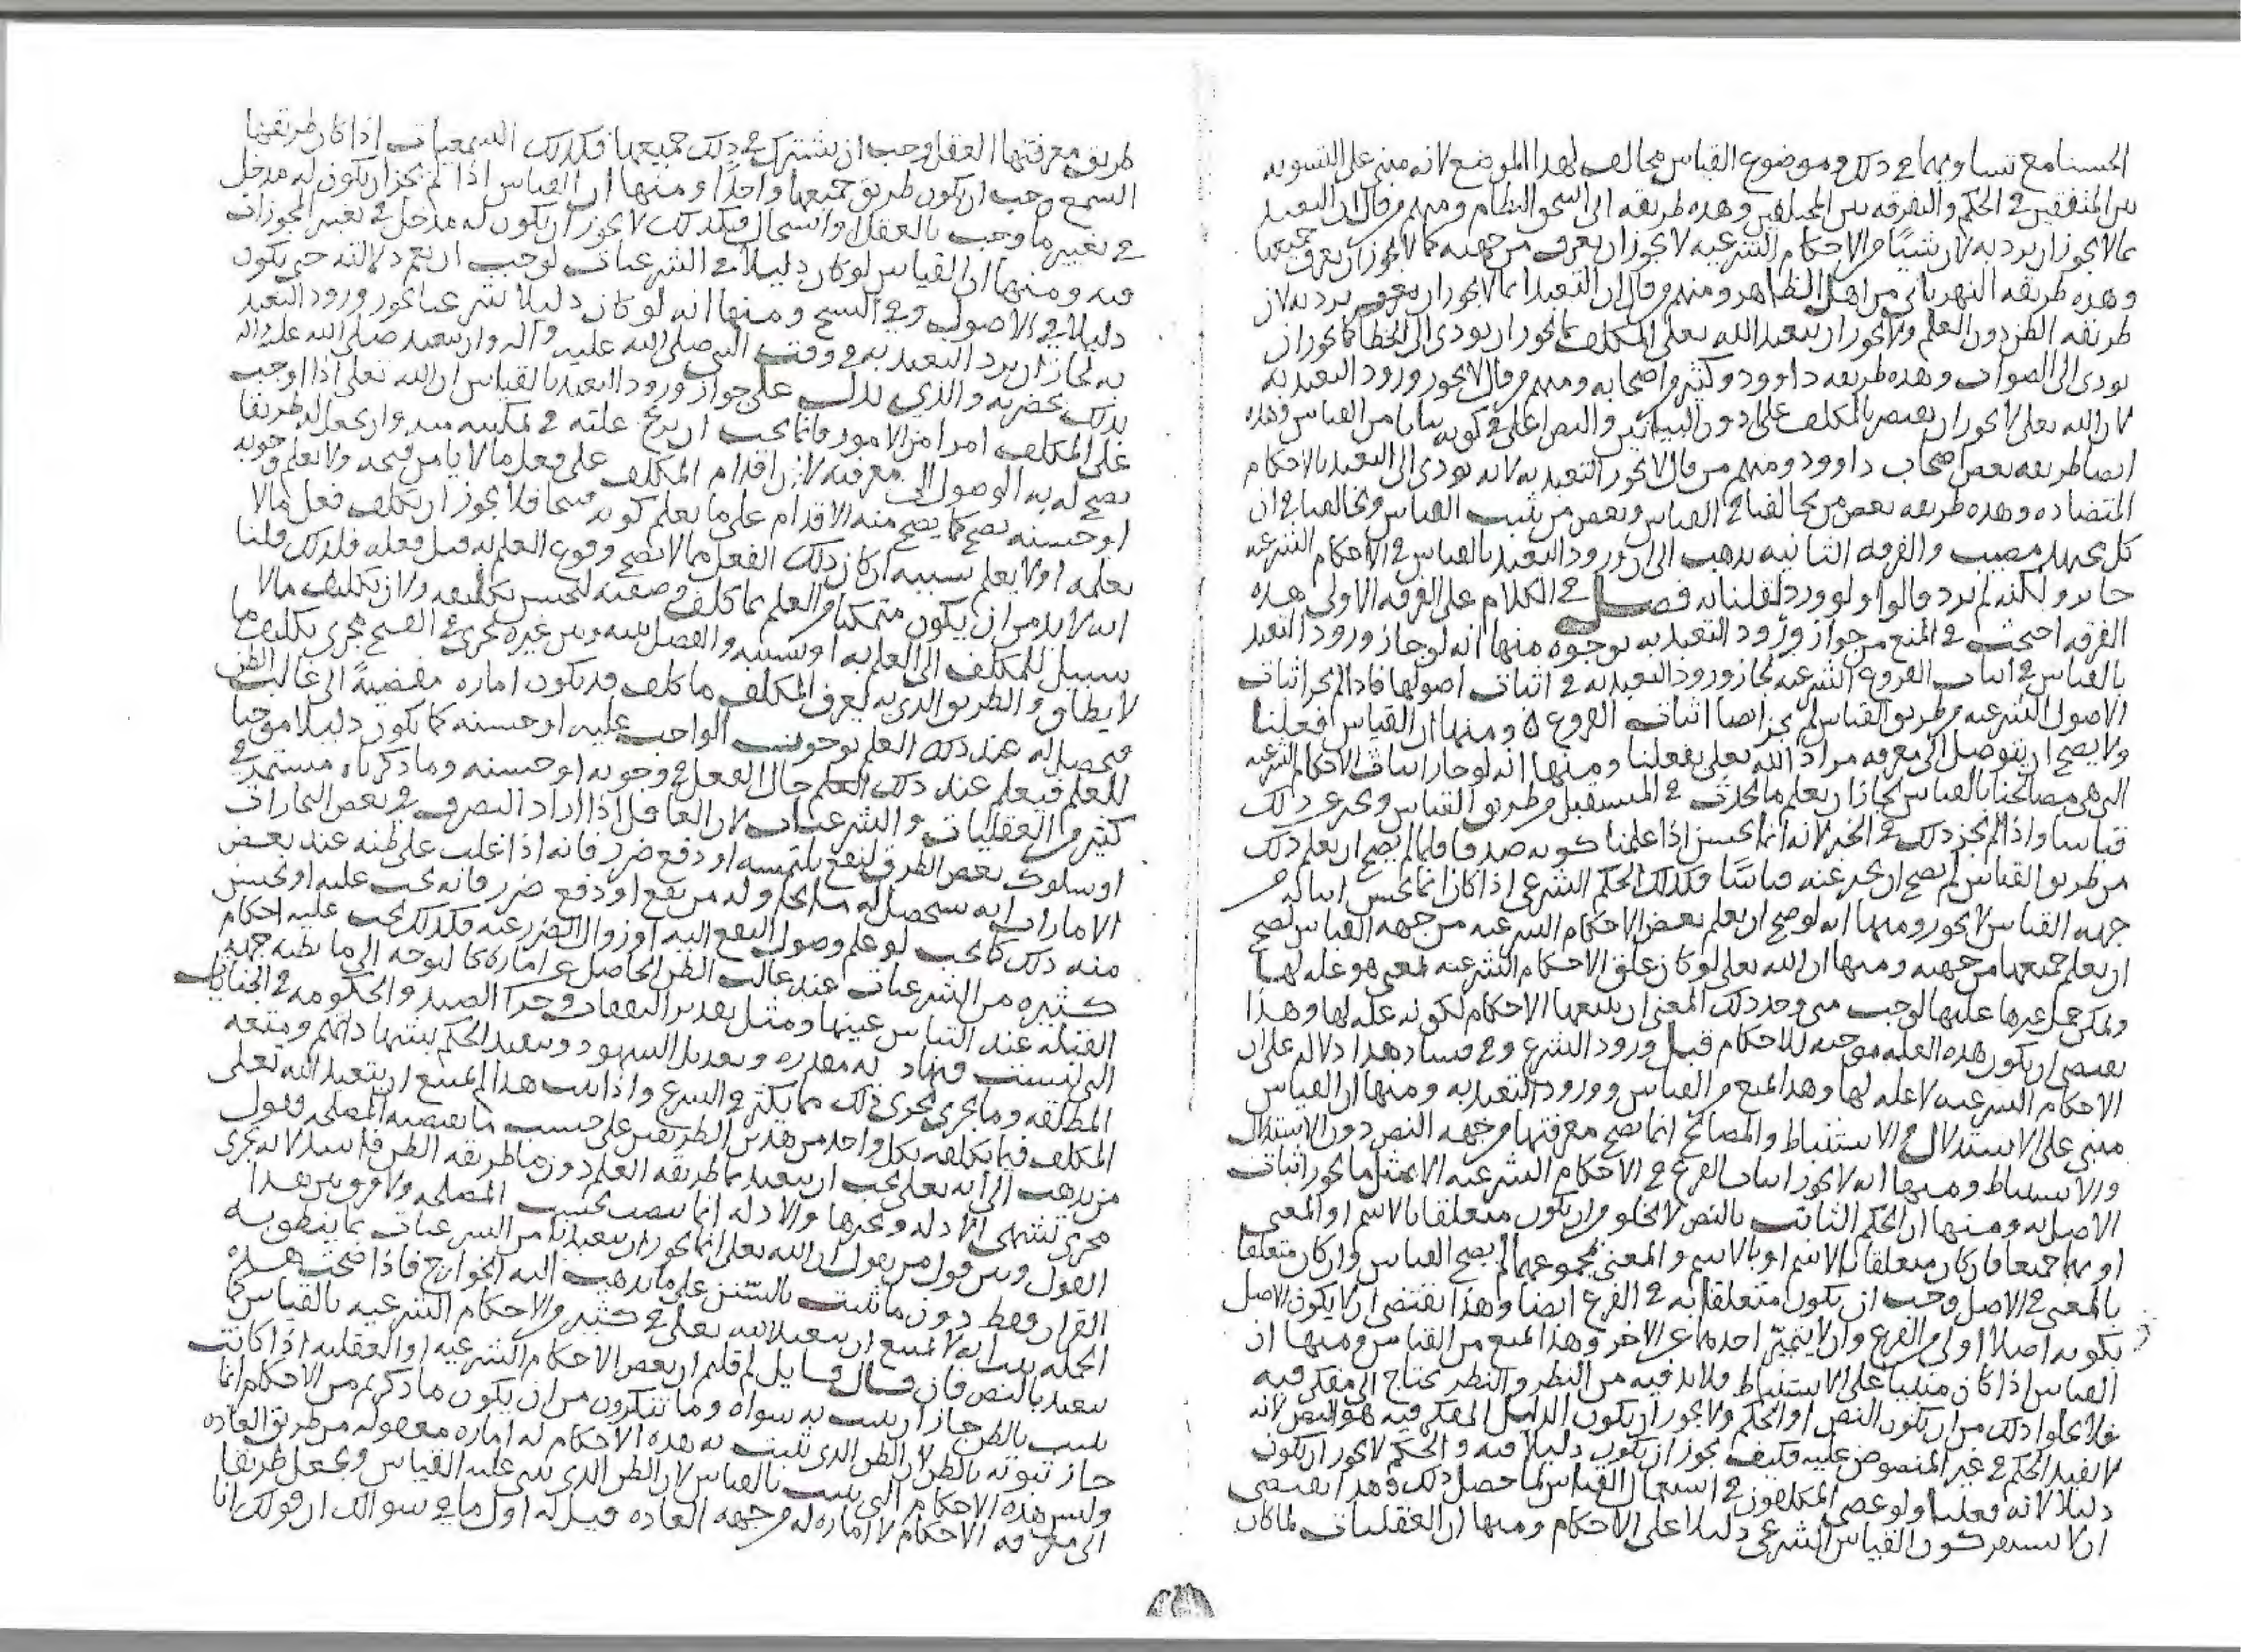 الحسنا مع تساويهما في ذلك وموضوع القياس مخالف لهذا الموضع لانه مبني على التسويه
بين المتفقين في الحكم والتفرقه بين المختلفين وهذه طريقه ابي اسحق النظام ومنهم من قال ان التعبد
مما لا يجوز ان يرد به لان شيئا من الاحكام الشرعيه لا يجوز ان يعرف من جهته كما لا يجوز ان يعرف جميعها
وهذه طريقه النهرباني من اهل الظاهر ومنهم من قال ان التعبد انما لا يجوز ان يرد به لان
طريقه الظن دون العلم ولا يجوز ان يتعبد الله تعلى المكلف بما يجوز ان يودي الى الخطا كما يجوز ان
يودي الى الصواب وهذه طريقه داوود وكثير من اصحابه ومنهم من قال لا يجوز ورود التعبد به
لان الله تعلى لا يجوز ان يقتصر بالمكلف على دون البيانين والنص اعلى في كونه بيانا من القياس وهذه
ايضا طريقه بعض اصحاب داوود ومنهم من قال لا يجوز التعبد به لانه يودي الى التعبد بالاحكام
المتضاده وهذه طريقه بعض من يخالفنا في القياس وبعض من يثبت القياس ويخالفنا في ان
كل مجتهد مصيب والفرقه الثانيه يذهب الى ان ورود التعبد بالقياس في الاحكام الشرعيه
جايز ولكنه لم يرد قالوا ولو ورد لقلنا به فصل في الكلام على الفرقه الاولى هذه
الفرقه احتجت في المنع من جواز ورود التعبد به بوجوه منها انه لو جاز ورود التعبد
بالقياس في اثبات الفروع الشرعيه لجاز ورود التعبد به في اثبات اصولها فاذا لم يجز اثبات
الاصول الشرعيه من طريق القياس لم يجز ايضا اثبات الفروع ومنها ان القياس فعلنا
ولا يصح ان يتوصل الى معرفه مراد الله تعلى بفعلنا ومنها انه لو جاز اثبات الاحكام الشرعيه
التي هي مصالحنا بالقياس لجاز ان يعلم ما يحدث في المستقبل من طريق القياس ويخبر عن ذلك
قياسا واذا لم يجز ذلك في الخبر لانه انما يحسن اذا علمنا كونه صدقا فلما لم يصح ان يعلم ذلك
من طريق القياس لم يصح ان يخبر عنه قياسا فكذلك الحكم الشرعي اذا كان انما يحسن اثباته من
جهه القياس لا يجوز ومنها انه لو صح ان يعلم بعض الاحكام الشرعيه من جهه القياس لصح
ان يعلم جميعها من جهته ومنها ان الله تعلى لو كان علق الاحكام الشرعيه لمعنى هو عله لها
ولمكن حمل غيرها عليها لوجب متى وجد ذلك المعنى ان يتبعها الاحكام لكونه عله لها وهذا
يقتضي ان يكون هذه العله موجبه للاحكام قبل ورود الشرع وفي فساد هذا دلاله على ان
الاحكام الشرعيه لا عله لها وهذا يمنع من القياس وورود التعبد به ومنها ان القياس
مبني على الاستدلال والاستنباط والمصالح انما يصح معرفتها من جهه النص دون الاستدلال
والاستنباط ومنها انه لا يجوز اثبات الفرع في الاحكام الشرعيه الا بمثل ما يجوز اثبات
الاصل به ومنها ان الحكم الثابت بالنص لا يخلو من ان يكون متعلقا بالاسم او المعنى
او بهما جميعا فان كان متعلقا بالاسم او بالاسم والمعنى مجموعهما لم يصح القياس وان كان متعلقا
بالمعنى في الاصل وجب ان يكون متعلقا به في الفرع ايضا وهذا يقتضي ان لا يكون الاصل
بكونه اصلا اولى من الفرع وان لا يتميز احدهما عن الاخر وهذا يمنع من القياس ومنها ان
القياس اذا كان مبنيا على الاستنباط فلا بد فيه من النظر والنظر يحتاج الى مفكر فيه
فلا يخلوا ذلك من ان يكون النص او الحكم ولا يجوز ان يكون الدليل المفكر فيه هو النص لانه
لا يفيد الحكم في غير المنصوص عليه فكيف يجوز ان يكون دليلا فيه والحكم لا يجوز ان يكون
دليلا لانه فعلنا ولو عصى المكلفون في استعمال القياس لما حصل ذلك وهذا يقتضي
ان لا يستمر كون القياس الشرعي دليلا على الاحكام ومنها ان العقليات لما كان
طريق معرفتها العقل وجب ان يشترك في ذلك جميعها فكذلك السمعيات اذا كان طريقها
السمع وجب ان يكون طريق جميعها واحدا ومنها ان القياس اذا لم يجز ان يكون له مدخل
في تغيير ما وجب بالعقل واستحال فكذلك لا يجوز ان يكون له مدخل في تغيير المجوزات
فيه ومنها ان القياس لو كان دليلا في الشرعيات لوجب ان يعم دلالته حتى يكون
دليلا في الاصول وفي النسخ ومنها انه لو كان دليلا شرعيا يجوز ورود التعبد
به لجاز ان يرد التعبد به في وقت النبي صلى الله عليه وآله وان يتعبد صلى الله عليه واله
بذلك بحضرته والذي يدل على جواز ورود التعبد بالقياس ان الله تعلى اذا اوجب
على المكلف امرا من الامور فانما يجب ان يزيح علته في تمكينه منه وان يجعل له طريقا
يصح له به الوصول الى معرفته لان اقدام المكلف على فعل ما لا يامن قبحه ولا يعلم وجوبه
او حسنه يقبح كما يقبح منه الاقدام على ما يعلم كونه قبيحا فلا يجوز ان يكلف فعل ما لا
يعلمه او لا يعلم سببه ان كان ذلك الفعل مما لا يصح وقوع العلم به قبل فعله فلذلك قلنا
انه لا بد من ان يكون متمكنا من العلم بما كلف وصفته ليحسن تكليفه ولان تكليف ما لا
سبيل للمكلف الى العلم به او بسببه والفصل بينه وبين غيره يجري في القبح مجرى تكليف ما
لا يطاق والطريق الذي به يعرف المكلف ما كلف قد يكون اماره مفضية الى غالب الظن
فيحصل له عند ذلك العلم بوجوب الواجب عليه او حسنه كما يكون دليلا موجبا
للعلم فيعلم عند ذلك العلم حال الفعل في وجوبه او حسنه وما ذكرناه مستمر في
كثير من العقليات والشرعيات لان العاقل اذا اراد التصرف في بعض التجارات
او سلوك بعض الطرق لنفع يلتمسه او دفع ضرر فانه اذا غلب على ظنه عند بعض
الامارات انه سيحصل له ما يحاوله من نفع او دفع ضرر فانه يجب عليه او يحسن
منه ذلك كما يجب لو علم وصول النفع اليه او زوال الضرر عنه فكذلك يجب عليه احكام
كثيره من الشرعيات عند غالب الظن الحاصل عن اماره كالتوجه الى ما يظنه جهه
القبله عند التباس عينها ومثل تقدير النفقات وجزا الصيد والحكومه في الجنايات
التي ليست فيها دية مقدره وتعديل الشهود وتعبد الحكم بشهادتهم ومتعه
المطلقه وما يجري مجرى ذلك مما يكثر في الشرع واذا ثبت هذا لم يمتنع ان يتعبد الله تعلى
المكلف فيما يكلفه بكل واحد من هذين الطريقين على حسب ما يقتضيه المصلحه وقول
من يذهب الى انه تعلى يجب ان يتعبد بما طريقه العلم دون ما طريقه الظن فاسد لانه يجري
مجرى تشهي الادله وتخيرها والادله انما ينصب بحسب المصلحه ولا فرق بين هذا
القول وبين قول من يقول ان الله تعلى انما يجوز ان يتعبدنا من الشرعيات بما ينطق به
القران فقط دون ما ثبت بالسنن على ما يذهب اليه الخوارج فاذا صحت هذه
الجمله ثبت انه لا يمتنع ان يتعبد الله تعلى في كثير من الاحكام الشرعيه بالقياس كما
تعبد بالنص فان قال قايل لم قلتم ان بعض الاحكام الشرعيه او العقليه اذا كانت
يثبت بالظن جاز ان يثبت به سواه وما تنكرون من ان يكون ما ذكرتم من الاحكام انما
جاز ثبوته بالظن لان الظن الذي تثبت به هذه الاحكام له اماره معقوله من طريق العاده
وليس هذه الاحكام التي يثبت بالقياس لان الظن الذي بني عليه القياس ويجعل طريقا
الى معرفه الاحكام لا اماره له من جهه العاده قيل له اول ما في سوالك ان قولك انا